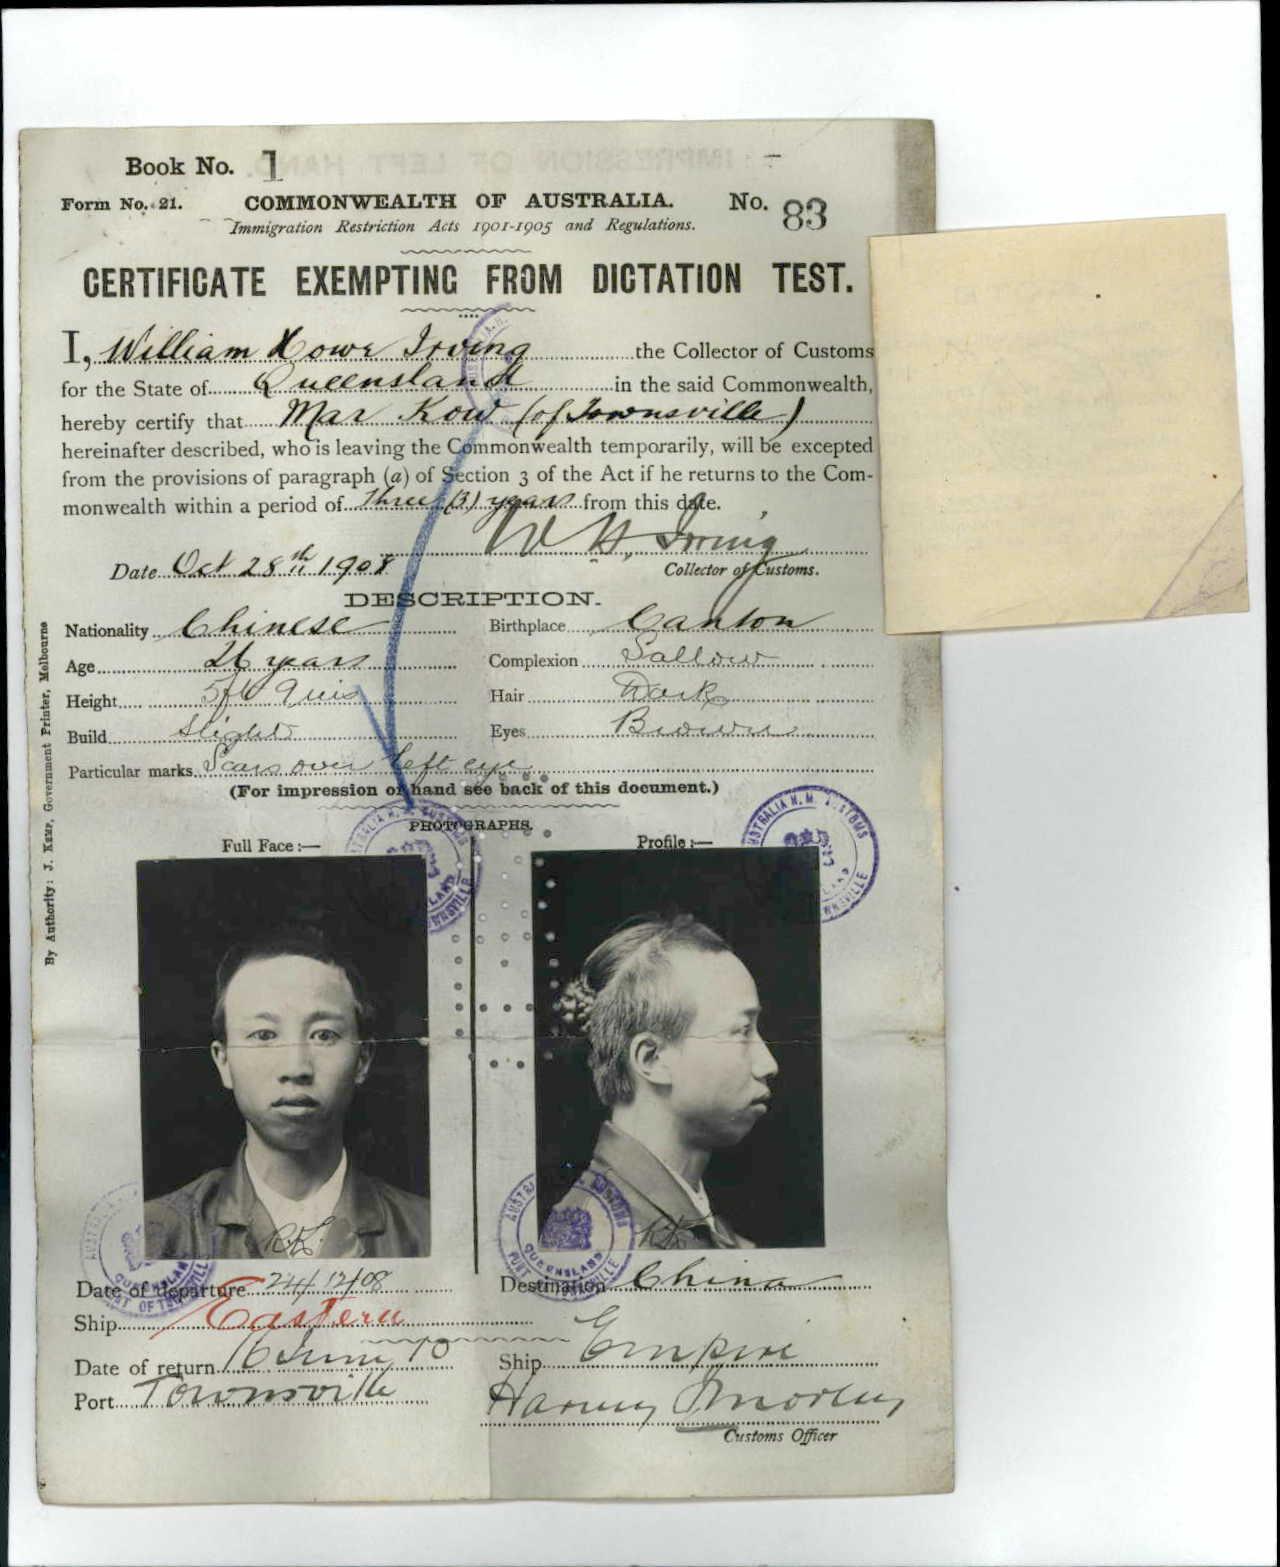 IMPRESSION OF LEFT HAND.
Book No. 1
Form No. 21. COMMONWEALTH OF AUSTRALIA. No. 83
Immigration Restriction Acts 1901-1905 and Regulations.
CERTIFICATE EXEMPTING FROM DICTATION TEST.
I, William Howe Irving the Collector of Customs
for the State of Queensland in the said Commonwealth,
hereby certify that Mar Kow (of Townsville)
hereinafter described, who is leaving the Commonwealth temporarily, will be excepted
from the provisions of paragraph (a) of Section 3 of the Act if he returns to the Com-
monwealth within a period of three (3) years from this date.
W H Irving
Date Oct 28th 1908 Collector of Customs.
DESCRIPTION.
Nationality Chinese Birthplace Canton
Age 26 years Complexion Sallow
Height 5ft 9 ins Hair Dark
Build Slight Eyes Brown
Particular marks Scars over left eye
(For impression of hand see back of this document.)
PHOTOGRAPHS.
Full Face :— Profile :—
By Authority: J. KEMP, Government Printer, Melbourne
AUSTRALIA H. M. CUSTOMS
QUEENSLAND
PORT OF TOWNSVILLE
Date of departure 24/12/08 Destination China
Ship Eastern
Date of return 16 June 10 Ship Empire
Port Townsville Harvey
Customs Officer